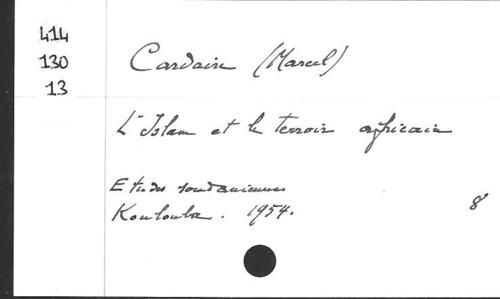 414
130
13
Cardaire (Marcel)
L'Islam et le terroir africain
Etudes soudaniennes
Koulouba. 1954.
8